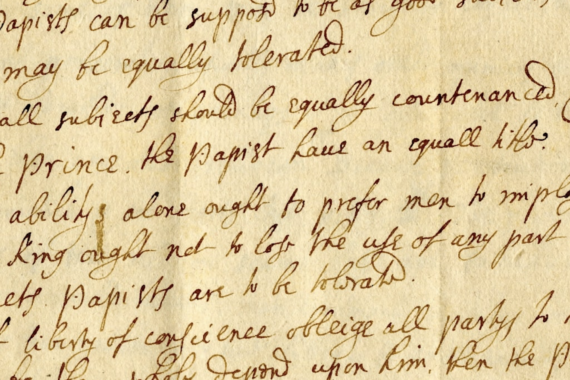 Papists can be suppos'd to be as good
may be equally tolerated.
all subiects should be equally countenanced,
Prince. the Papist have an equall title.
abilitys alone ought to prefer men to
King ought not to lose the use of any part
Papists are to be tolerated.
liberty of conscience obleige all partys to
depend upon him, then the